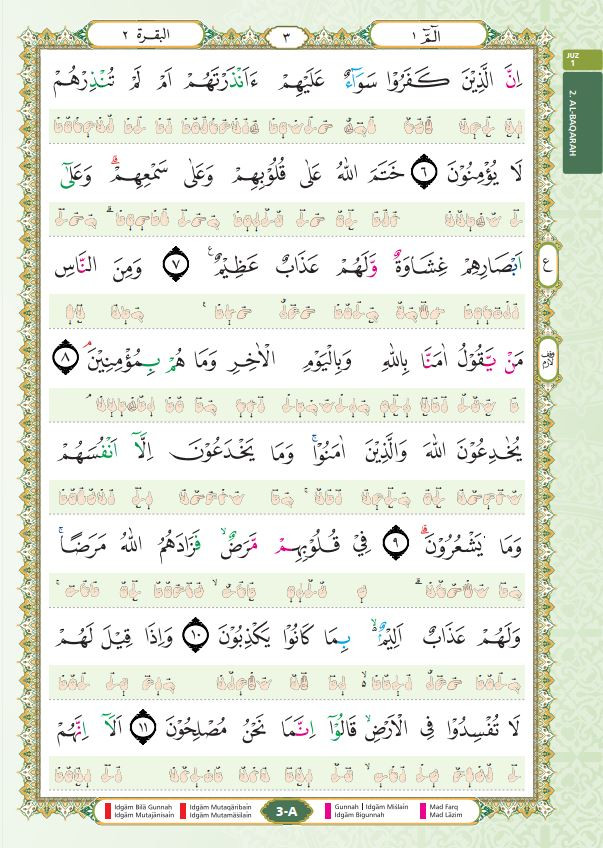 البقرة ٢
٣
الٓمّٓ ١
JUZ
١
2. AL-BAQARAH
اِنَّ الَّذِيْنَ كَفَرُوْا سَوَاۤءٌ عَلَيْهِمْ ءَاَنْذَرْتَهُمْ اَمْ لَمْ تُنْذِرْهُمْ
لَا يُؤْمِنُوْنَ ٦ خَتَمَ اللّٰهُ عَلٰى قُلُوْبِهِمْ وَعَلٰى سَمْعِهِمْ ۗ وَعَلٰٓى
اَبْصَارِهِمْ غِشَاوَةٌ وَّلَهُمْ عَذَابٌ عَظِيْمٌ ࣖ ٧ وَمِنَ النَّاسِ
ع
مَنْ يَّقُوْلُ اٰمَنَّا بِاللّٰهِ وَبِالْيَوْمِ الْاٰخِرِ وَمَا هُمْ بِمُؤْمِنِيْنَ ۘ ٨
يُخٰدِعُوْنَ اللّٰهَ وَالَّذِيْنَ اٰمَنُوْا ۚ وَمَا يَخْدَعُوْنَ اِلَّآ اَنْفُسَهُمْ
وَمَا يَشْعُرُوْنَ ۗ ٩ فِيْ قُلُوْبِهِمْ مَّرَضٌ ۙ فَزَادَهُمُ اللّٰهُ مَرَضًا ۚ
وَلَهُمْ عَذَابٌ اَلِيْمٌ ۢ ۙ بِمَا كَانُوْا يَكْذِبُوْنَ ١٠ وَاِذَا قِيْلَ لَهُمْ
لَا تُفْسِدُوْا فِى الْاَرْضِ ۙ قَالُوْٓا اِنَّمَا نَحْنُ مُصْلِحُوْنَ ١١ اَلَآ اِنَّهُمْ
Idgām Bilā Gunnah
Idgām Mutajānisain
Idgām Mutaqāribain
Idgām Mutamāṡilain
3-A
Gunnah | Idgām Miṡlain
Idgām Bigunnah
Mad Farq
Mad Lāzim